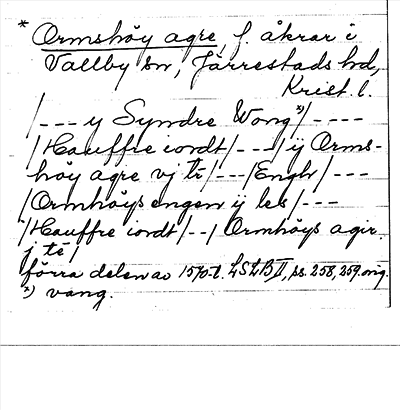 * Ormshöy agre, f. åkrar i
Vallby sn, Järrestads hd,
Krist. l.
/--- y Syndre Wong *)/----
/Hauffre iordt/---/ ij Orms-
höy agre vj te/---/Engh/---
/Ormhöys engen ij les/---
/Hauffre iordt/--/ Ormhöys agir
j te/
förra delen av 1570-t. LSLB II, ss. 258, 259 orig.
*) vang.